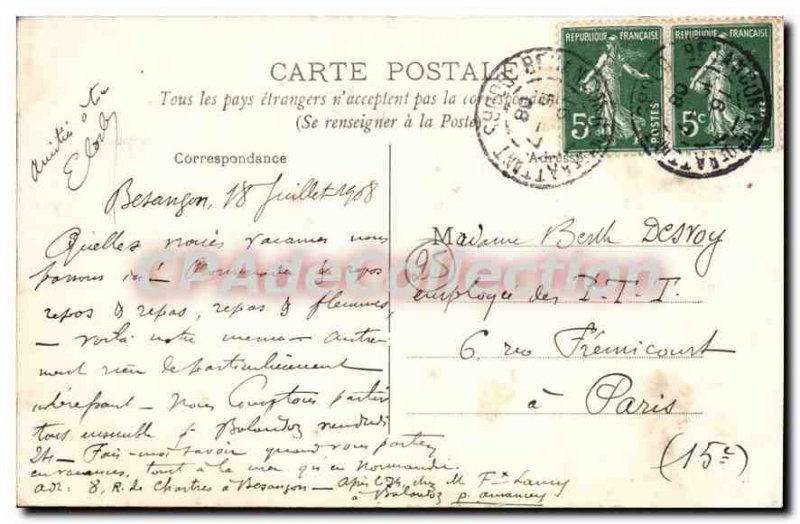 RÉPUBLIQUE FRANÇAISE
RÉPUBLIQUE FRANÇAISE
5c
POSTES
5c
CARTE POSTALE
Tous les pays étrangers n'acceptent pas la correspondan
(Se renseigner à la Poste)
Correspondance
Adresse
Amitié à tu
Besançon, 18 Juillet 1908
Quelles vacances nous
passons ici! Promenade & repos
repos & repas, repas & flemmes,
— voilà notre menu — Autre-
ment rien de particulièrement
intéressant — Nous comptons partir
tous ensemble p. Bolandoz vendredi
24 — Fais-moi savoir quand vous partez
en vacances, tout à la mer qu'en Normandie.
adr: 8, R. de Chartres à Besançon — Après 24, chez M.
à Bolandoz p. Amancey
Madame Berthe Desroy
employée des P.T.T.
6, rue Frémicourt
à Paris
25
(15c)
CPAdeCollection